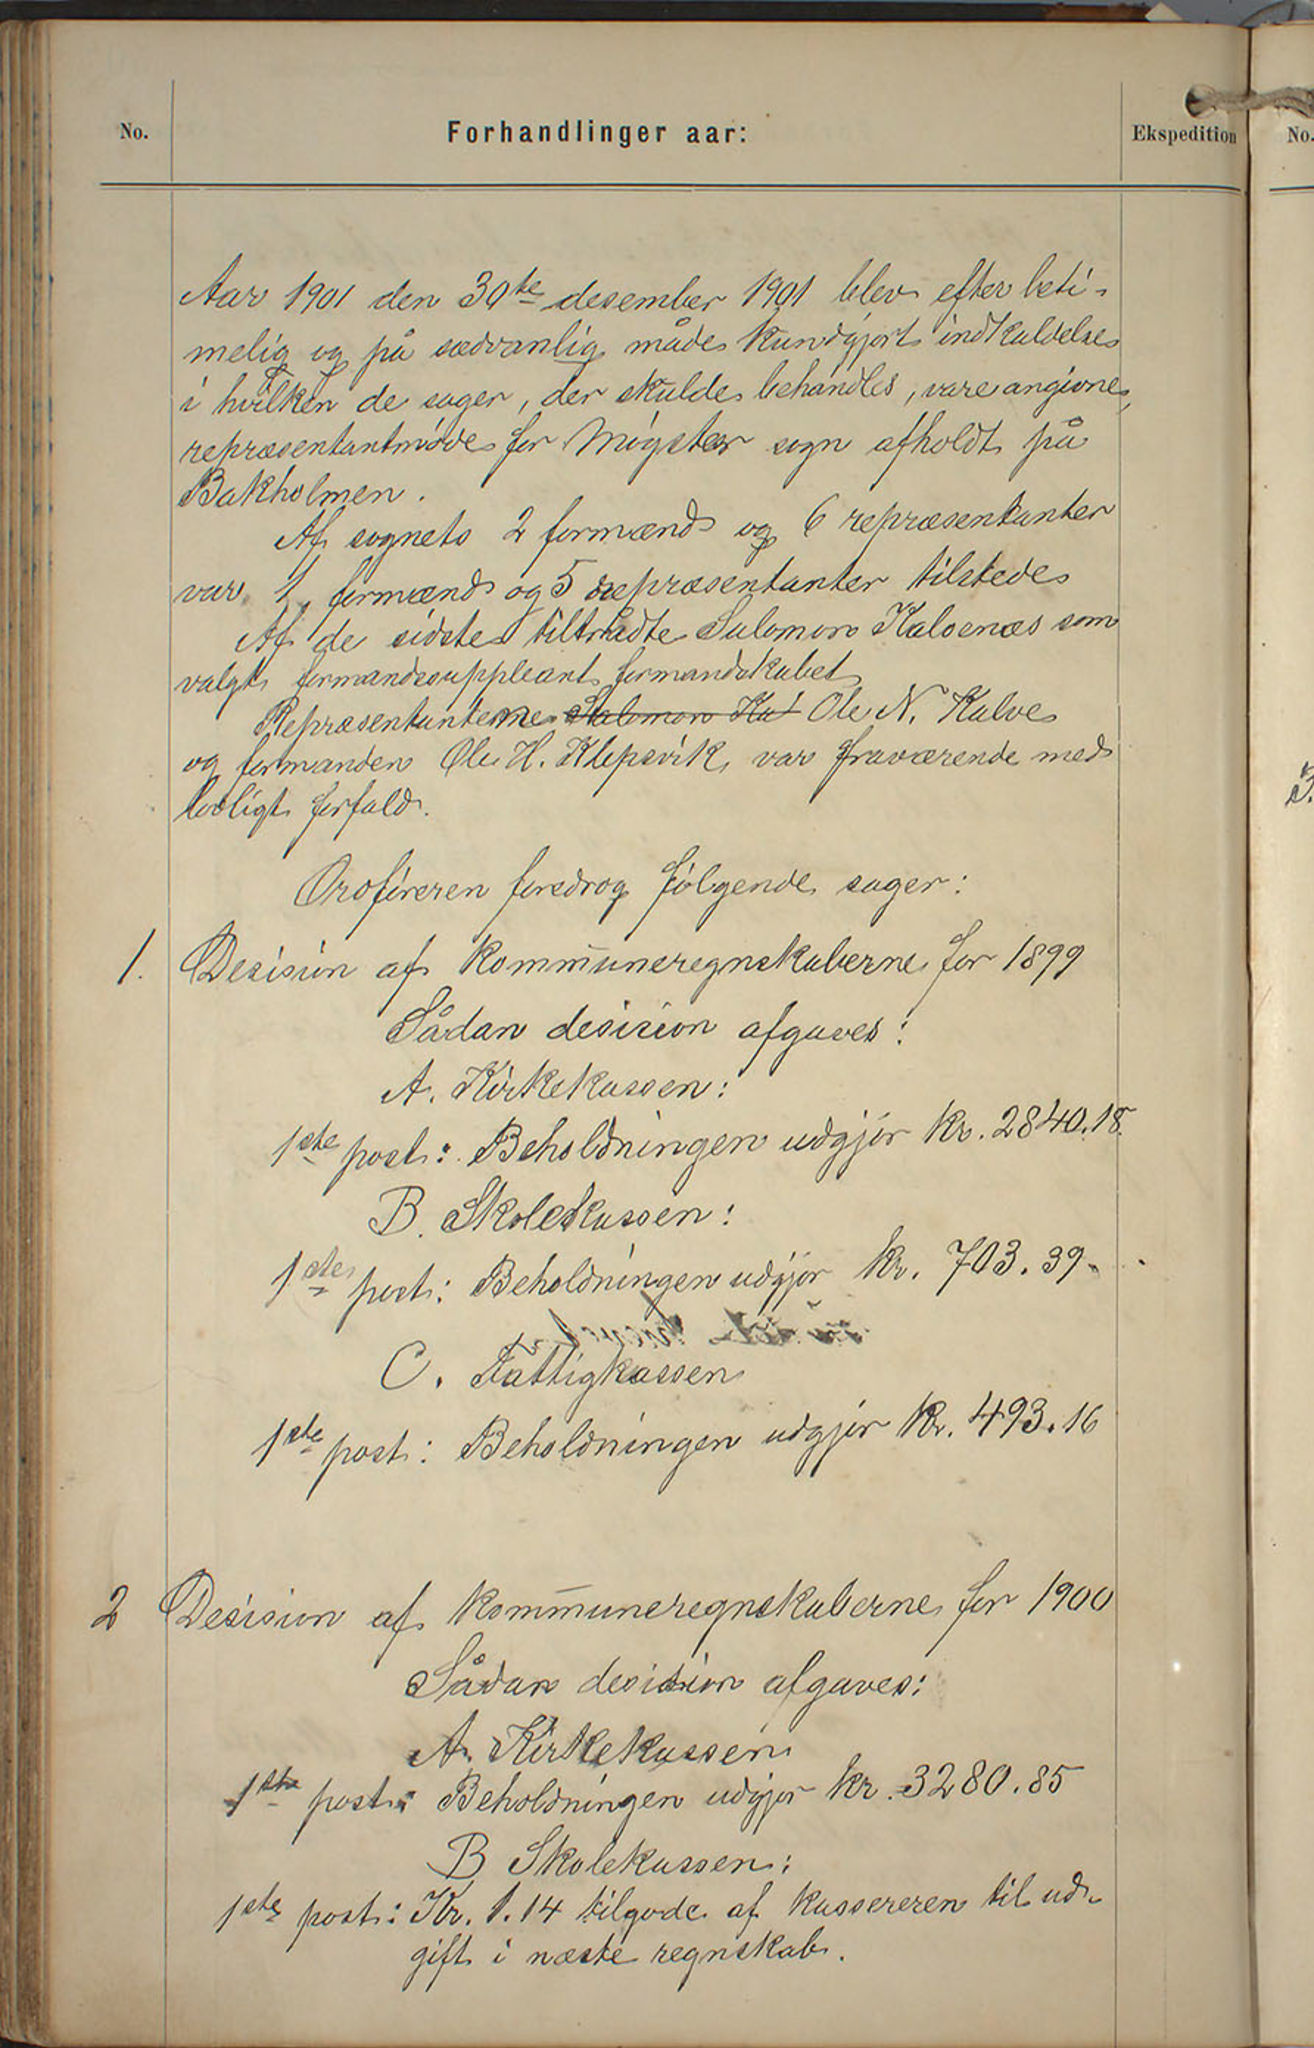 No.
Forhandlinger aar:
Ekspedition
No.
Aar 1901 den 30te desember 1901 blev efter beti-
melig og på sædvanlig måde kundgjort indkaldelse
i hvilken de sager, der skulde behandles, vare angivne,
repræsentantmøde for Møgster sogn afholdt på
Bakholmen.
Af sognets 2 formænd og 6 repræsentanter
var 1 formænd og 5 repræsentanter tilstede
Af de sidste tiltrådte Salomon Kalvenæs som
valgt formandssuppleant formandskabet
Repræsentanterne Salomon Kal Ole N. Kalve
og formanden Ole H. Klepsvik, var fraværende med
lovligt forfald.
Ordføreren foredrog følgende sager:
1. Desision af kommuneregnskaberne for 1899
Sådan desision afgaves:
A. Kirkekassen:
1ste post: Beholdningen udgjør kr. 2840.18.
B. Skolekassen:
1ste post: Beholdningen udgjør kr. 703.39.
C. Fattigkassen
1ste post: Beholdningen udgjør kr. 493.16
2 Desision af kommuneregnskaberne for 1900
Sådan desision afgaves:
A. Kirkekassen
1ste post: Beholdningen udgjør kr. 3280.85
B Skolekassen:
1ste post: Kr. 1.14 tilgode af kassereren til ud-
gift i næste regnskab.